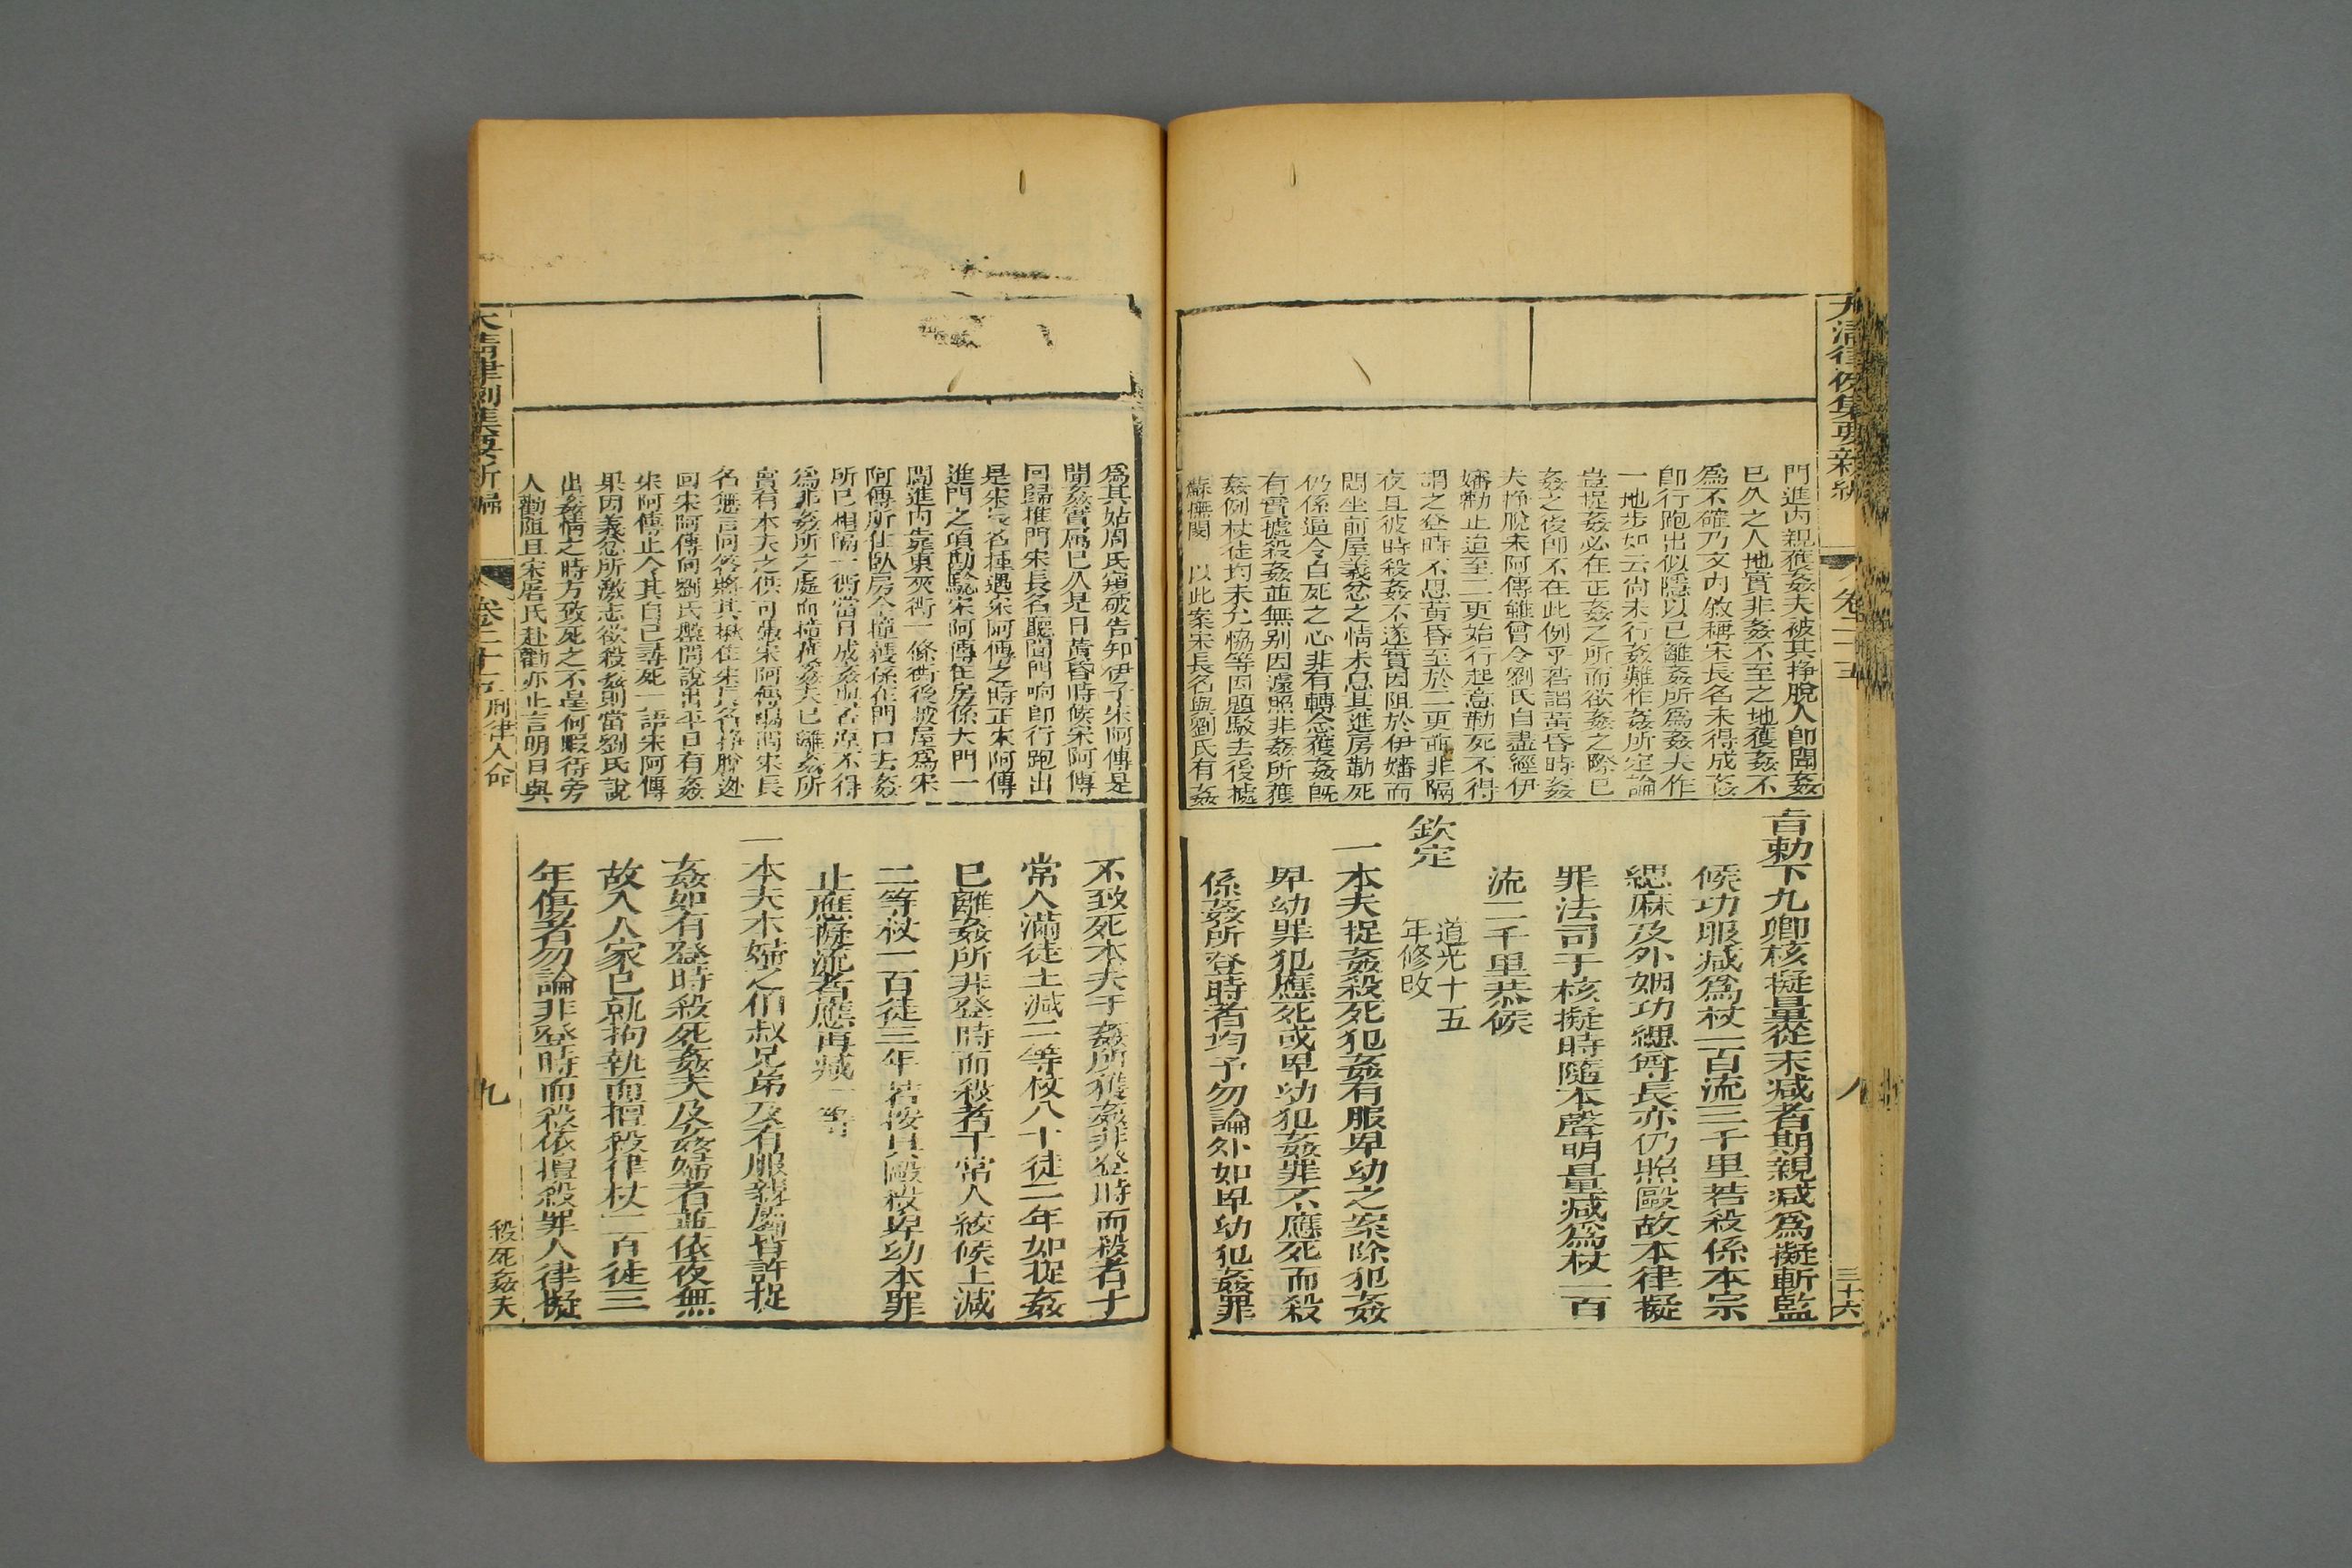 大清律例集要新編
卷二十五
八
三十六
門進内親獲姦夫被其掙脫人卽聞姦
已久之人地實非姦不至之地獲姦不
爲不確乃文内敘稱宋長名未得成姦
卽行跑出似隱以已離姦所爲姦夫作
一地步如云尚未行姦難作姦所定論
豈捉姦必在正姦之所而欲姦之際已
姦之後卽不在此例乎若謂黃昏時姦
夫掙脫宋阿傳雖曾令劉氏自盡經伊
嬸勸止迫至二更始行起意勒死不得
謂之登時不思黃昏至於二更並非隔
夜且彼時殺姦不遂實因阻於伊嬸而
悶坐前屋義忿之情未息其進房勒死
仍係逼令自死之心非有轉念獲姦旣
有實據殺姦並無别因濾照非姦所獲
姦例杖徒均未允恊等因題駁去後據
蘇撫閔 以此案宋長名與劉氏有姦
旨勅下九卿核擬量從末减者期親减爲擬斬監
候功服减爲杖一百流三千里若殺係本宗
緦麻及外姻功緦尊長亦仍照毆故本律擬
罪法司于核擬時隨本聲明量减爲杖一百
流二千里恭候
欽定
道光十五
年修改
一本夫捉姦殺死犯姦有服卑幼之案除犯姦
卑幼罪犯應死或卑幼犯姦罪不應死而殺
係姦所登時者均予勿論外如卑幼犯姦罪
爲其姑周氏窺破告知伊子宋阿傳是
聞姦實屬已久是日黃昏時候宋阿傳
回歸推門宋長名聽聞門响卽行跑出
是宋長名撞遇宋阿傳之時正宋阿傳
進門之項勘騐宋阿傳住房係大門一
間進内靠東夾衖一條衖後披屋爲宋
阿傳所住臥房今撞獲係在門口去姦
所已相隔一衖當日成姦與否原不得
爲非姦所之處而撞獲姦夫已離姦所
實有本夫之供可據宋阿傳喝問宋長
名無言回答將其揪住宋長名掙脫逃
回宋阿傳向劉氏盤問說出平日有姦
宋阿傳止令其自已尋死一語宋阿傳
果因義忿所激志欲殺姦則當劉氏說
出姦情之時方致死之不遑何暇待旁
人勸阻且宋居氏赴勸亦止言明日與
不致死本夫于姦所獲姦非登時而殺者于
常人滿徒上减二等杖八十徒二年如捉姦
已離姦所非登時而殺者于常人絞候上减
二等杖一百徒三年若按其毆殺卑幼本罪
止應擬流者應再减一等
一本夫本婦之伯叔兄弟及有服親屬皆許捉
姦如有登時殺死姦夫及姦婦者並依夜無
故入人家已就拘執而擅殺律杖一百徒三
年傷者勿論非登時而殺依擅殺罪人律擬
大清律例集要新編
卷二十五
刑律人命
九
殺死姦夫